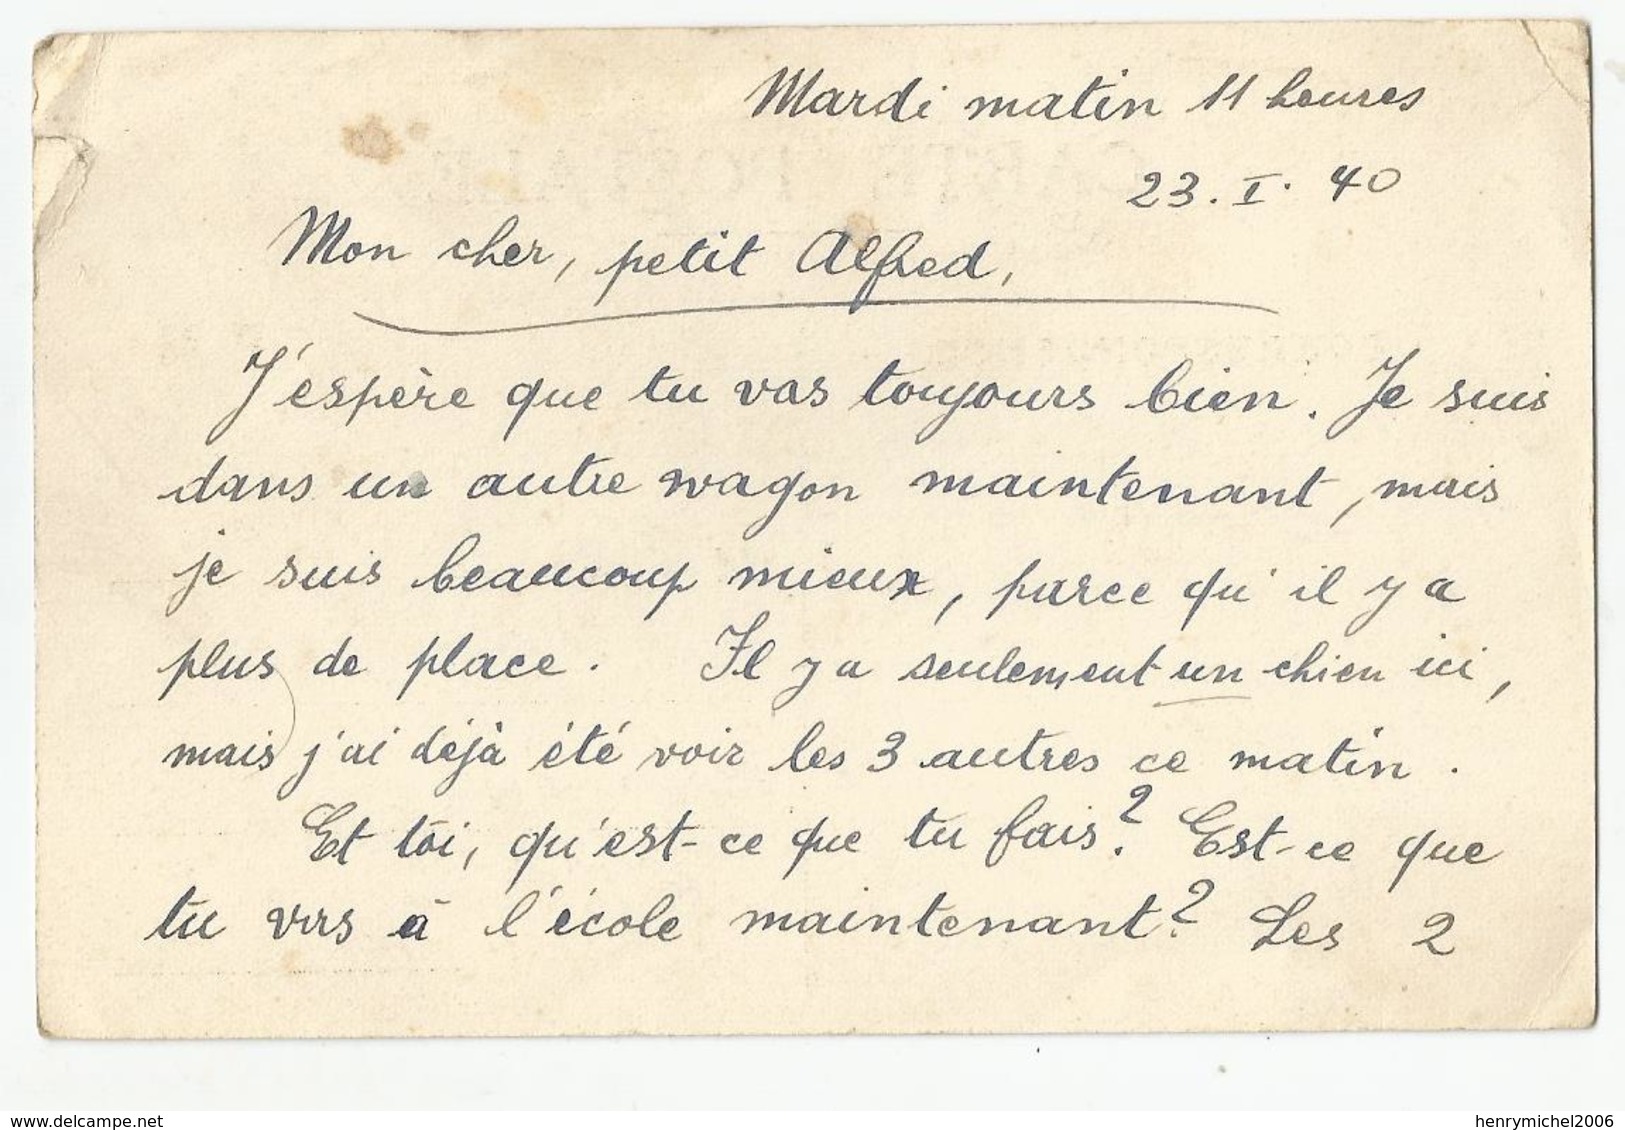 Mardi matin 11 heures
23. I. 40
Mon cher, petit Alfred,
J'espère que tu vas toujours bien. Je suis
dans un autre wagon maintenant, mais
je suis beaucoup mieux, parce qu'il y a
plus de place. Il y a seulement un chien ici,
mais j'ai déjà été voir les 3 autres ce matin.
Et toi, qu'est-ce que tu fais? Est-ce que
tu vas à l'école maintenant? Les 2
delcampe.net
henrymichel2006